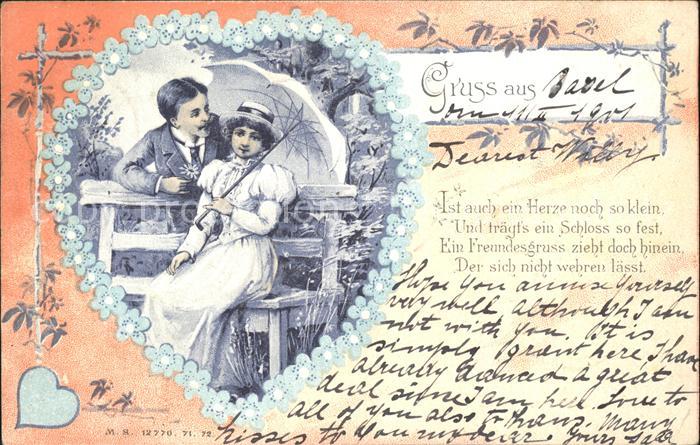 Gruss aus Basel
1901
Dearest Willy
Ist auch ein Herze noch so klein,
Und trägt's ein Schloss so fest,
Ein Freundesgruss zieht doch hinein,
Der sich nicht wehren lässt.
Hope you amuse yourself
very well although I am
not with you. It is
simply grand here I have
already danced a great
deal since I am here. Love to
all of you also to Hans. Many
kisses to you
M. S. 12770. 71. 72.